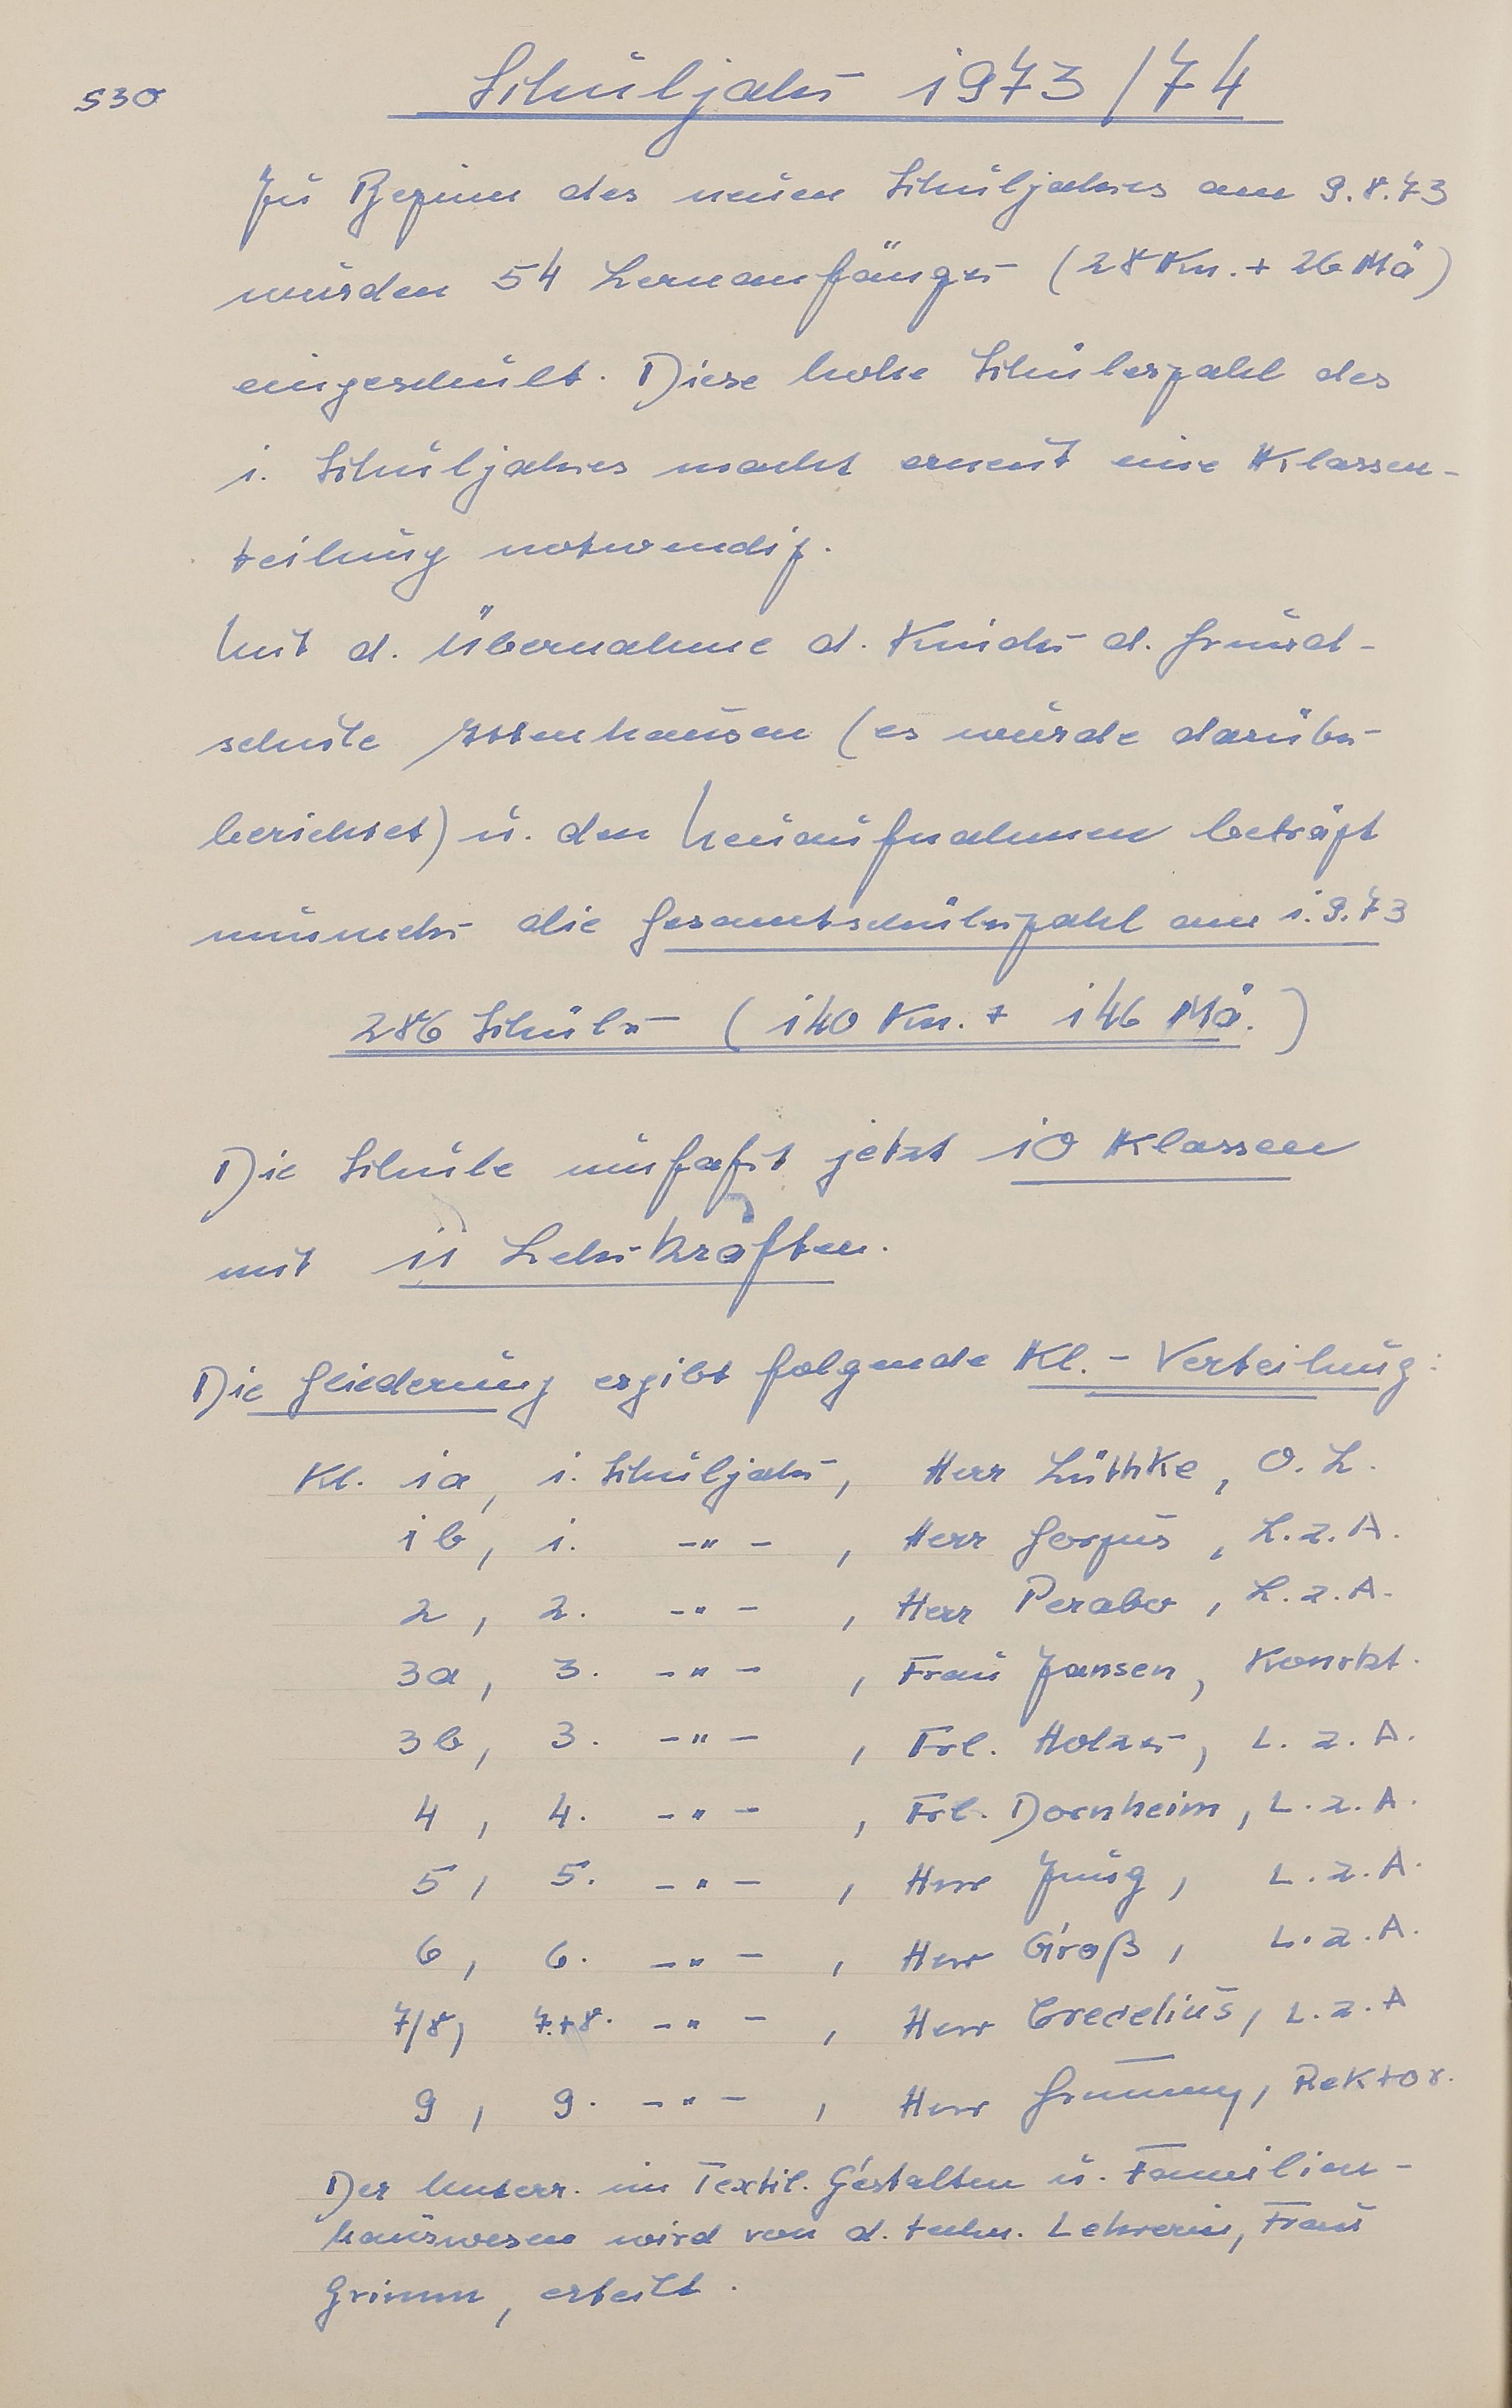 530
Schuljahr 1973/74
Zu Beginn des neuen Schuljahres am 9.8.73
wurden 54 Lernanfänger (28 Kn. + 26 Mä)
eingeschult. Diese hohe Schülerzahl des
1. Schuljahres macht erneut eine Klassen-
teilung notwendig.
Mit d. Übernahme d. Kinder d. Grund-
schule (es wurde darüber
berichtet) u. den Neuaufnahmen beträgt
nunmehr die Gesamtschülerzahl am 1.9.73
286 Schüler (140 Kn. + 146 Mä.)
Die Schule umfaßt jetzt 10 Klassen
mit 11 Lehrkräften.
Die Gliederung ergibt folgende Kl.-Verteilung:
Kl. 1a, 1. Schuljahr, Herr Lüthke, O.L.
1b, 1. -"-, Herr L.z.A.
2, 2. -"-, Herr Perabo, L.z.A.
3a, 3. -"-, Frau Jansen, Konrkt.
3b, 3. -"-, Frl. Holzer, L.z.A.
4, 4. -"-, Frl. Dornheim, L.z.A.
5, 5. -"-, Herr Jung, L.z.A.
6, 6. -"-, Herr Groß, L.z.A.
7/8, 7.+8. -"-, Herr Crecelius, L.z.A
9, 9. -"-, Herr Rektor.
Der Unterr. im Textil. Gestalten u. Familien-
hauswesen wird von d. techn. Lehrerin, Frau
Grimm, erteilt.